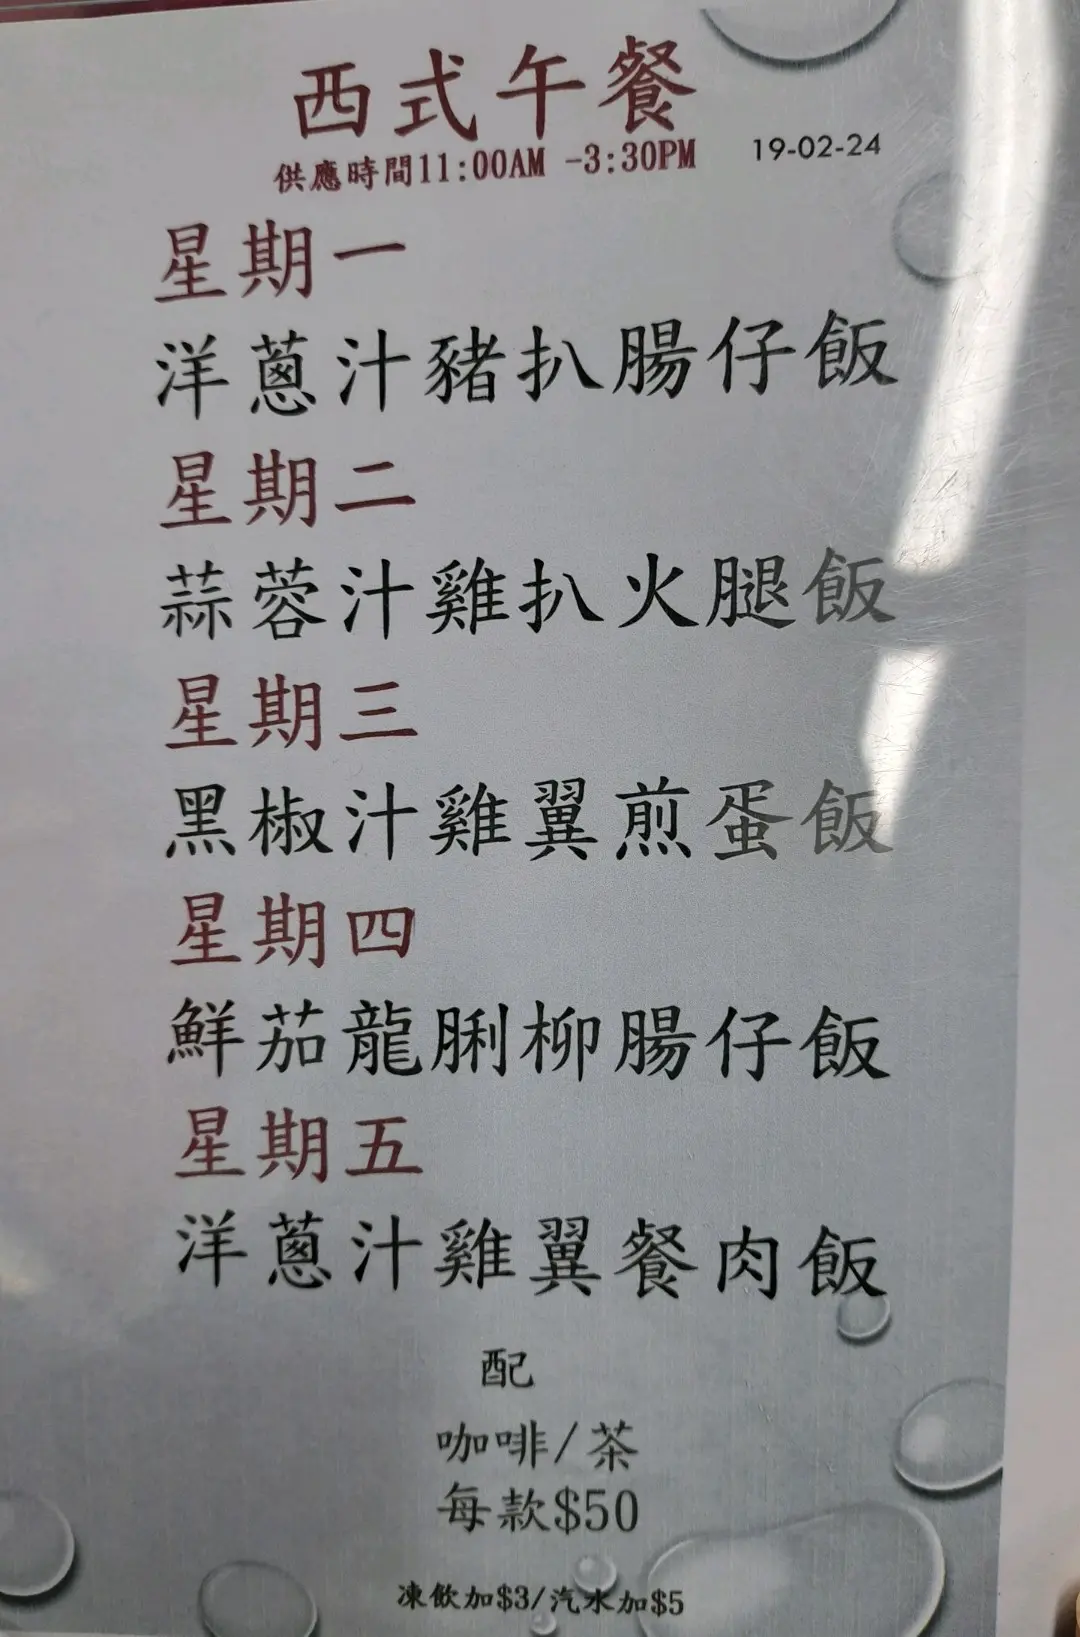 西式午餐
供應時間11:00AM -3:30PM 19-02-24
星期一
洋蔥汁豬扒腸仔飯
星期二
蒜蓉汁雞扒火腿飯
星期三
黑椒汁雞翼煎蛋飯
星期四
鮮茄龍脷柳腸仔飯
星期五
洋蔥汁雞翼餐肉飯
配
咖啡/茶
每款$50
凍飲加$3/汽水加$5